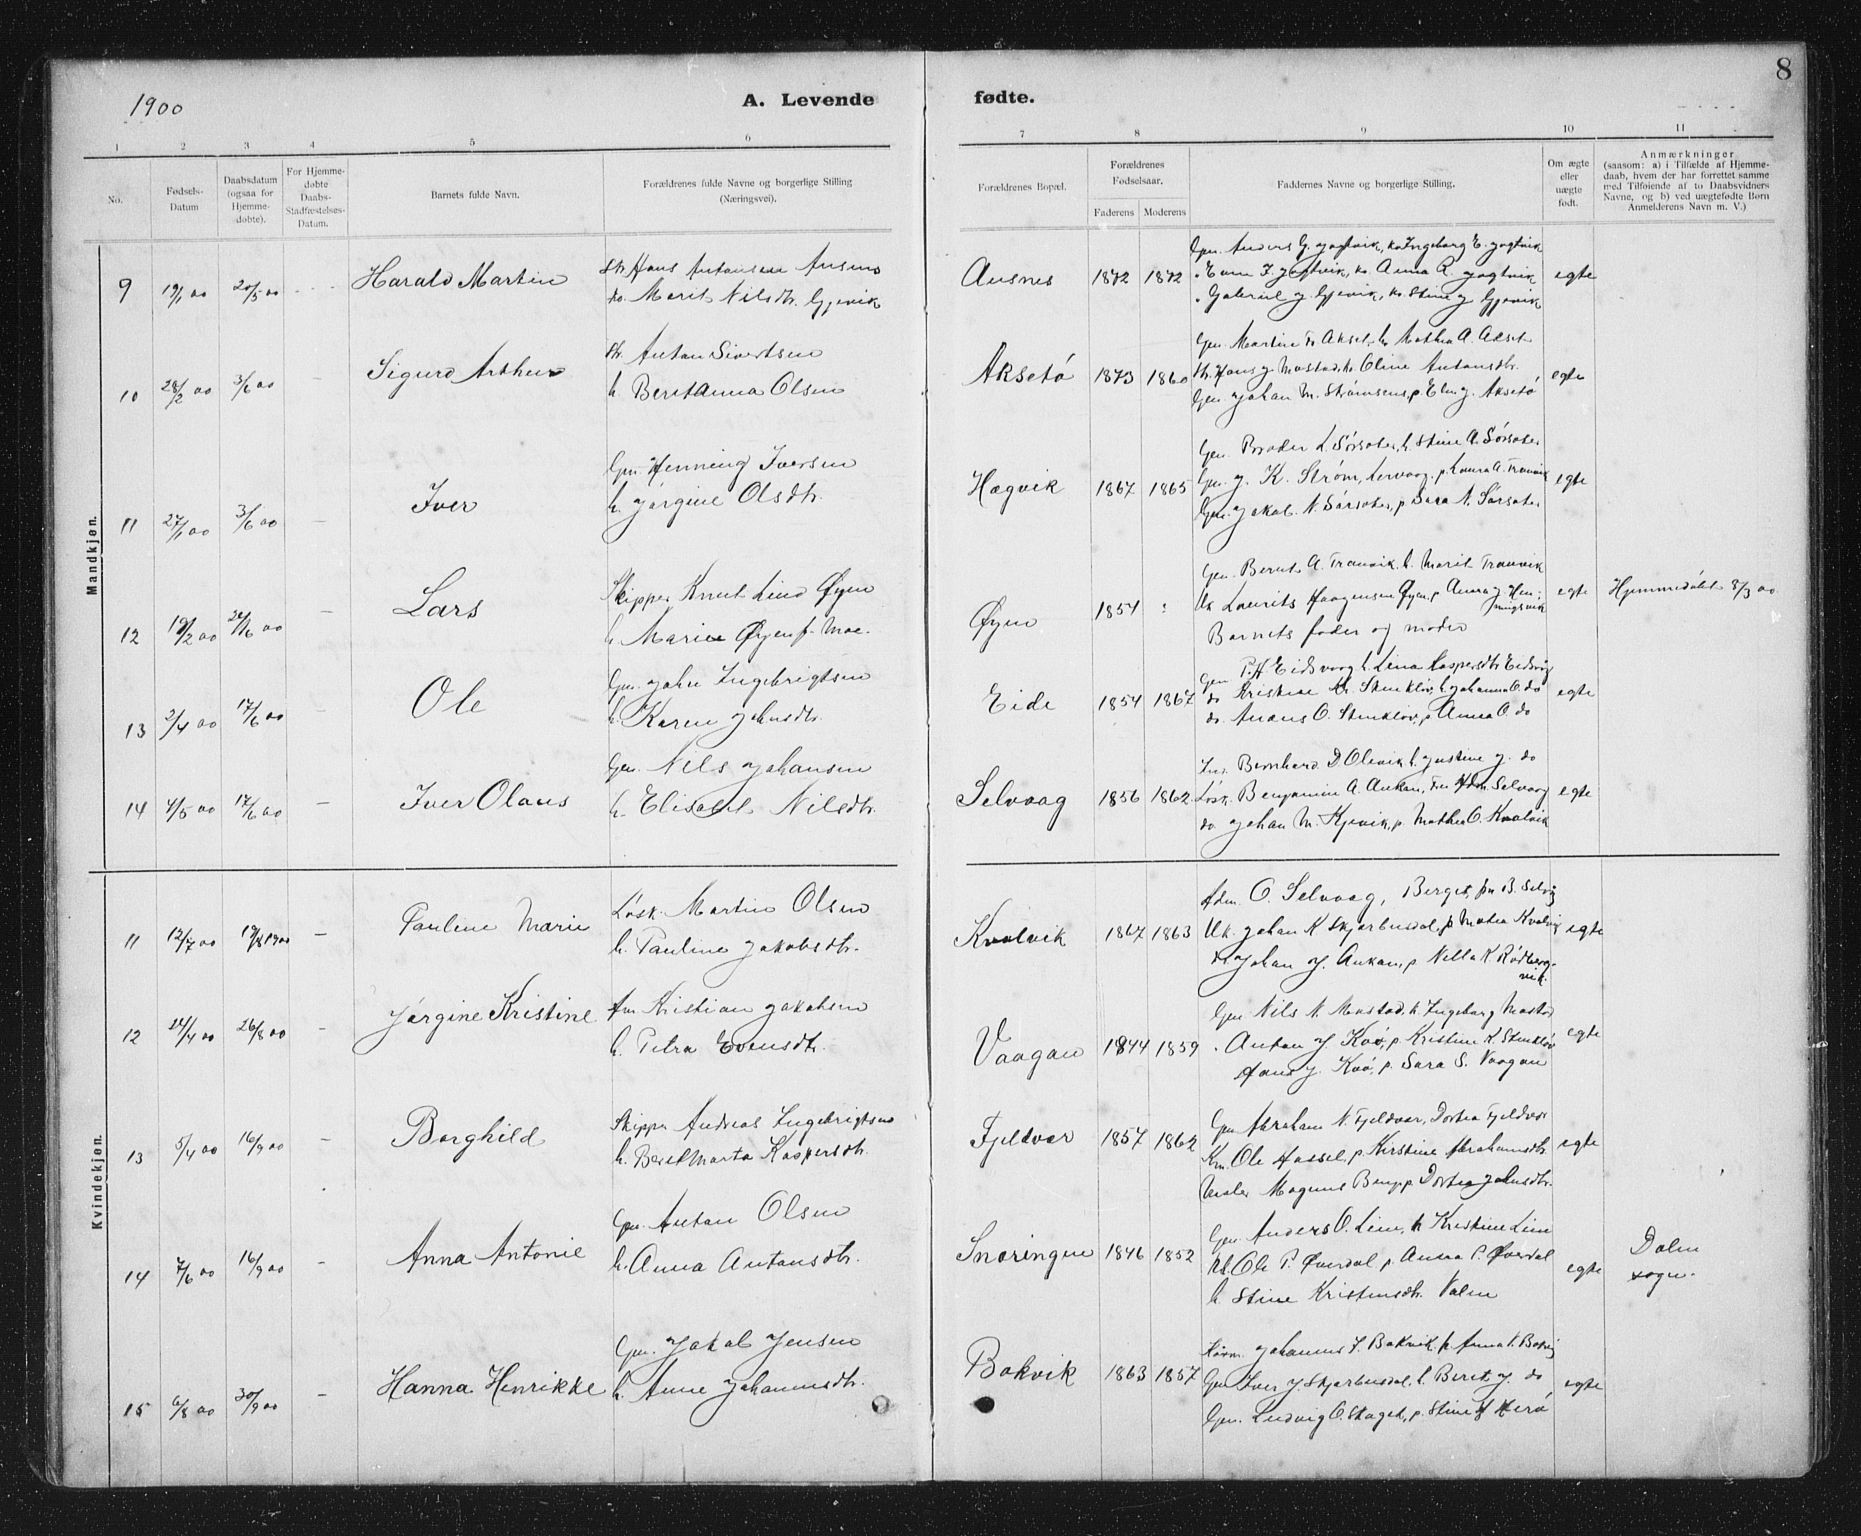 1900
A. Levende fødte.
8
1 2 3 4 5 6 7 8 9 10 11
No.
Fødsels-Datum
Daabsdatum (ogsaa for Hjemme-døbte).
For Hjemme-døbte Daabs-Stadfæstelses-Datum.
Barnets fulde Navn.
Forældrenes fulde Navne og borgerlige Stilling (Næringsvei).
Forældrenes Bopæl.
Forældrenes Fødselsaar.
Faderens Moderens
Faddernes Navne og borgerlige Stilling.
Om ægte eller uægte født.
Anmærkninger
(saasom: a) i Tilfælde af Hjemme-
daab, hvem der har forrettet samme
med Tilføiende af to Daabsvidners
Navne, og b) ved uægtefødte Børn
Anmelderens Navn m. V.)
Mandkjøn.
9 19/1 00 20/5 00 Harald Martin
Hans Antonsen Ausnes
Marit Nilsdtr. Gjøvik
Ausnes 1872 1872
Gm. Anders G. Jøgtvik, ko Ingeborg E. Jøgtvik
Even J. Jøgtvik, ko. Anna R. Jøgtvik
Gabriel J. Gjøvik, ko. Stine J. Gjøvik
egte
10 28/2 00 3/6 00 Sigurd Arthur
Anton Sivertsen
h. Beret Anna Olsen
Aksetø 1873 1860
Gm. Martin Akset, h Mathea A. Akset
Hans J. Mastad, h. Oline Antonsdtr.
Gm Johan M. Strømsens, p. Elen J. Aksetø
egte
11 27/1 00 3/6 00 Iver
Gm. Henning Iversen
h. Jørgine Olsdtr.
Hægvik 1867 1865
Gm. Broder L. Sørsæter, h. Stine A. Sørsæter
Gm. J. K. Strøm, Lervaag, p. Laura A. Tranvik
Gm. Jakob N. Sørsæter, p. Sara N. Sørsæter
egte
12 19/2 00 24/6 00 Lars
Skipper Knut Lind Øyen
h. Marie Øyen f. Moe.
Øyen 1854 :
Gm. Bernt A. Tranvik, h. Marit Tranvik
Uk Laurits Haagensen Øyen, p Anna J Hen-
ningsvik
Barnets fader og moder
egte Hjemmedøbt 8/3 00
13 2/4 00 17/6 00 Ole
Gm. John Ingebrigtsen
h. Karen Johnsdtr.
Eide 1854 1867
Gm P. H Eidsvaag h. Lina Kaspersdtr Eidsvåg
do Kristine Kr. Stenkløv, h Johanna O. do
do. Anans O. Stenkløv, p Anna O. do
egte
14 4/5 00 17/6 00 Iver Olaus
Gm. Nils Johansen
h. Elisabet Nilsdtr.
Selvaag 1856 1862
Bernhard D Olevik h. Justine J. do
Løsk. Benjamin A. Aukan, Selvaag
do Johan M. Kjøvik, p. Mathea O. Kvalvik
egte
Kvindekjøn.
11 12/7 00 19/8 1900 Pauline Marie
Løsk. Martin Olsen
h. Pauline Jakobsdtr.
Kvalvik 1867 1863
Adm. O. Selvaag, Berget, B. Selvåg
Uk. Johan K Skjørbusdal, p Matea Kvalvig
Johan J. Aukan, p Nella K Rødberg-
vik.
egte
12 24/4 00 26/8 00 Jørgine Kristine
Kristian Jakobsen
h. Petra Evensdtr.
Vaagan 1844 1859
Gm Nils N. Mastad, h. Ingeborg Mastad
Anton J. Kvø, p Kristine K. Stenkløv
Hans J. Kvø, p. Sara S. Vaagan
egte
13 5/4 00 16/9 00 Borghild
Skipper Andreas Ingebrigtsen
h. Beret Marta Kaspersdtr.
Fjeldvær 1857 1862
Gm Abraham N. Fjeldvær, Dortea Fjeldvær
Km. Ole Hassel, p. Kirstine Abrahamsdtr.
Maler Magnus Dortea Johnsdtr.
egte
14 7/6 00 16/9 00 Anna Antonie
Gm. Anton Olsen
h. Anna Antonsdtr.
Snøringen 1846 1852
Gm Anders O. Lien, h Kristine Lien
Ole P. Øverdal p. Anna P. Øverdal
h. Stine Kristensdtr. Valen
egte Dalen
sogn.
15 6/8 00 30/9 00 Hanna Henrikke
Gm. Jakob Jensen
h. Anne Johannesdtr.
Bakvik 1863 1857
Johannes J. Bakvik, h Anna
Gm Iver J Skjørbusdal, h. Beret J. do
Gm. Ludvig O. Skaget, p. Stine Herø
egte